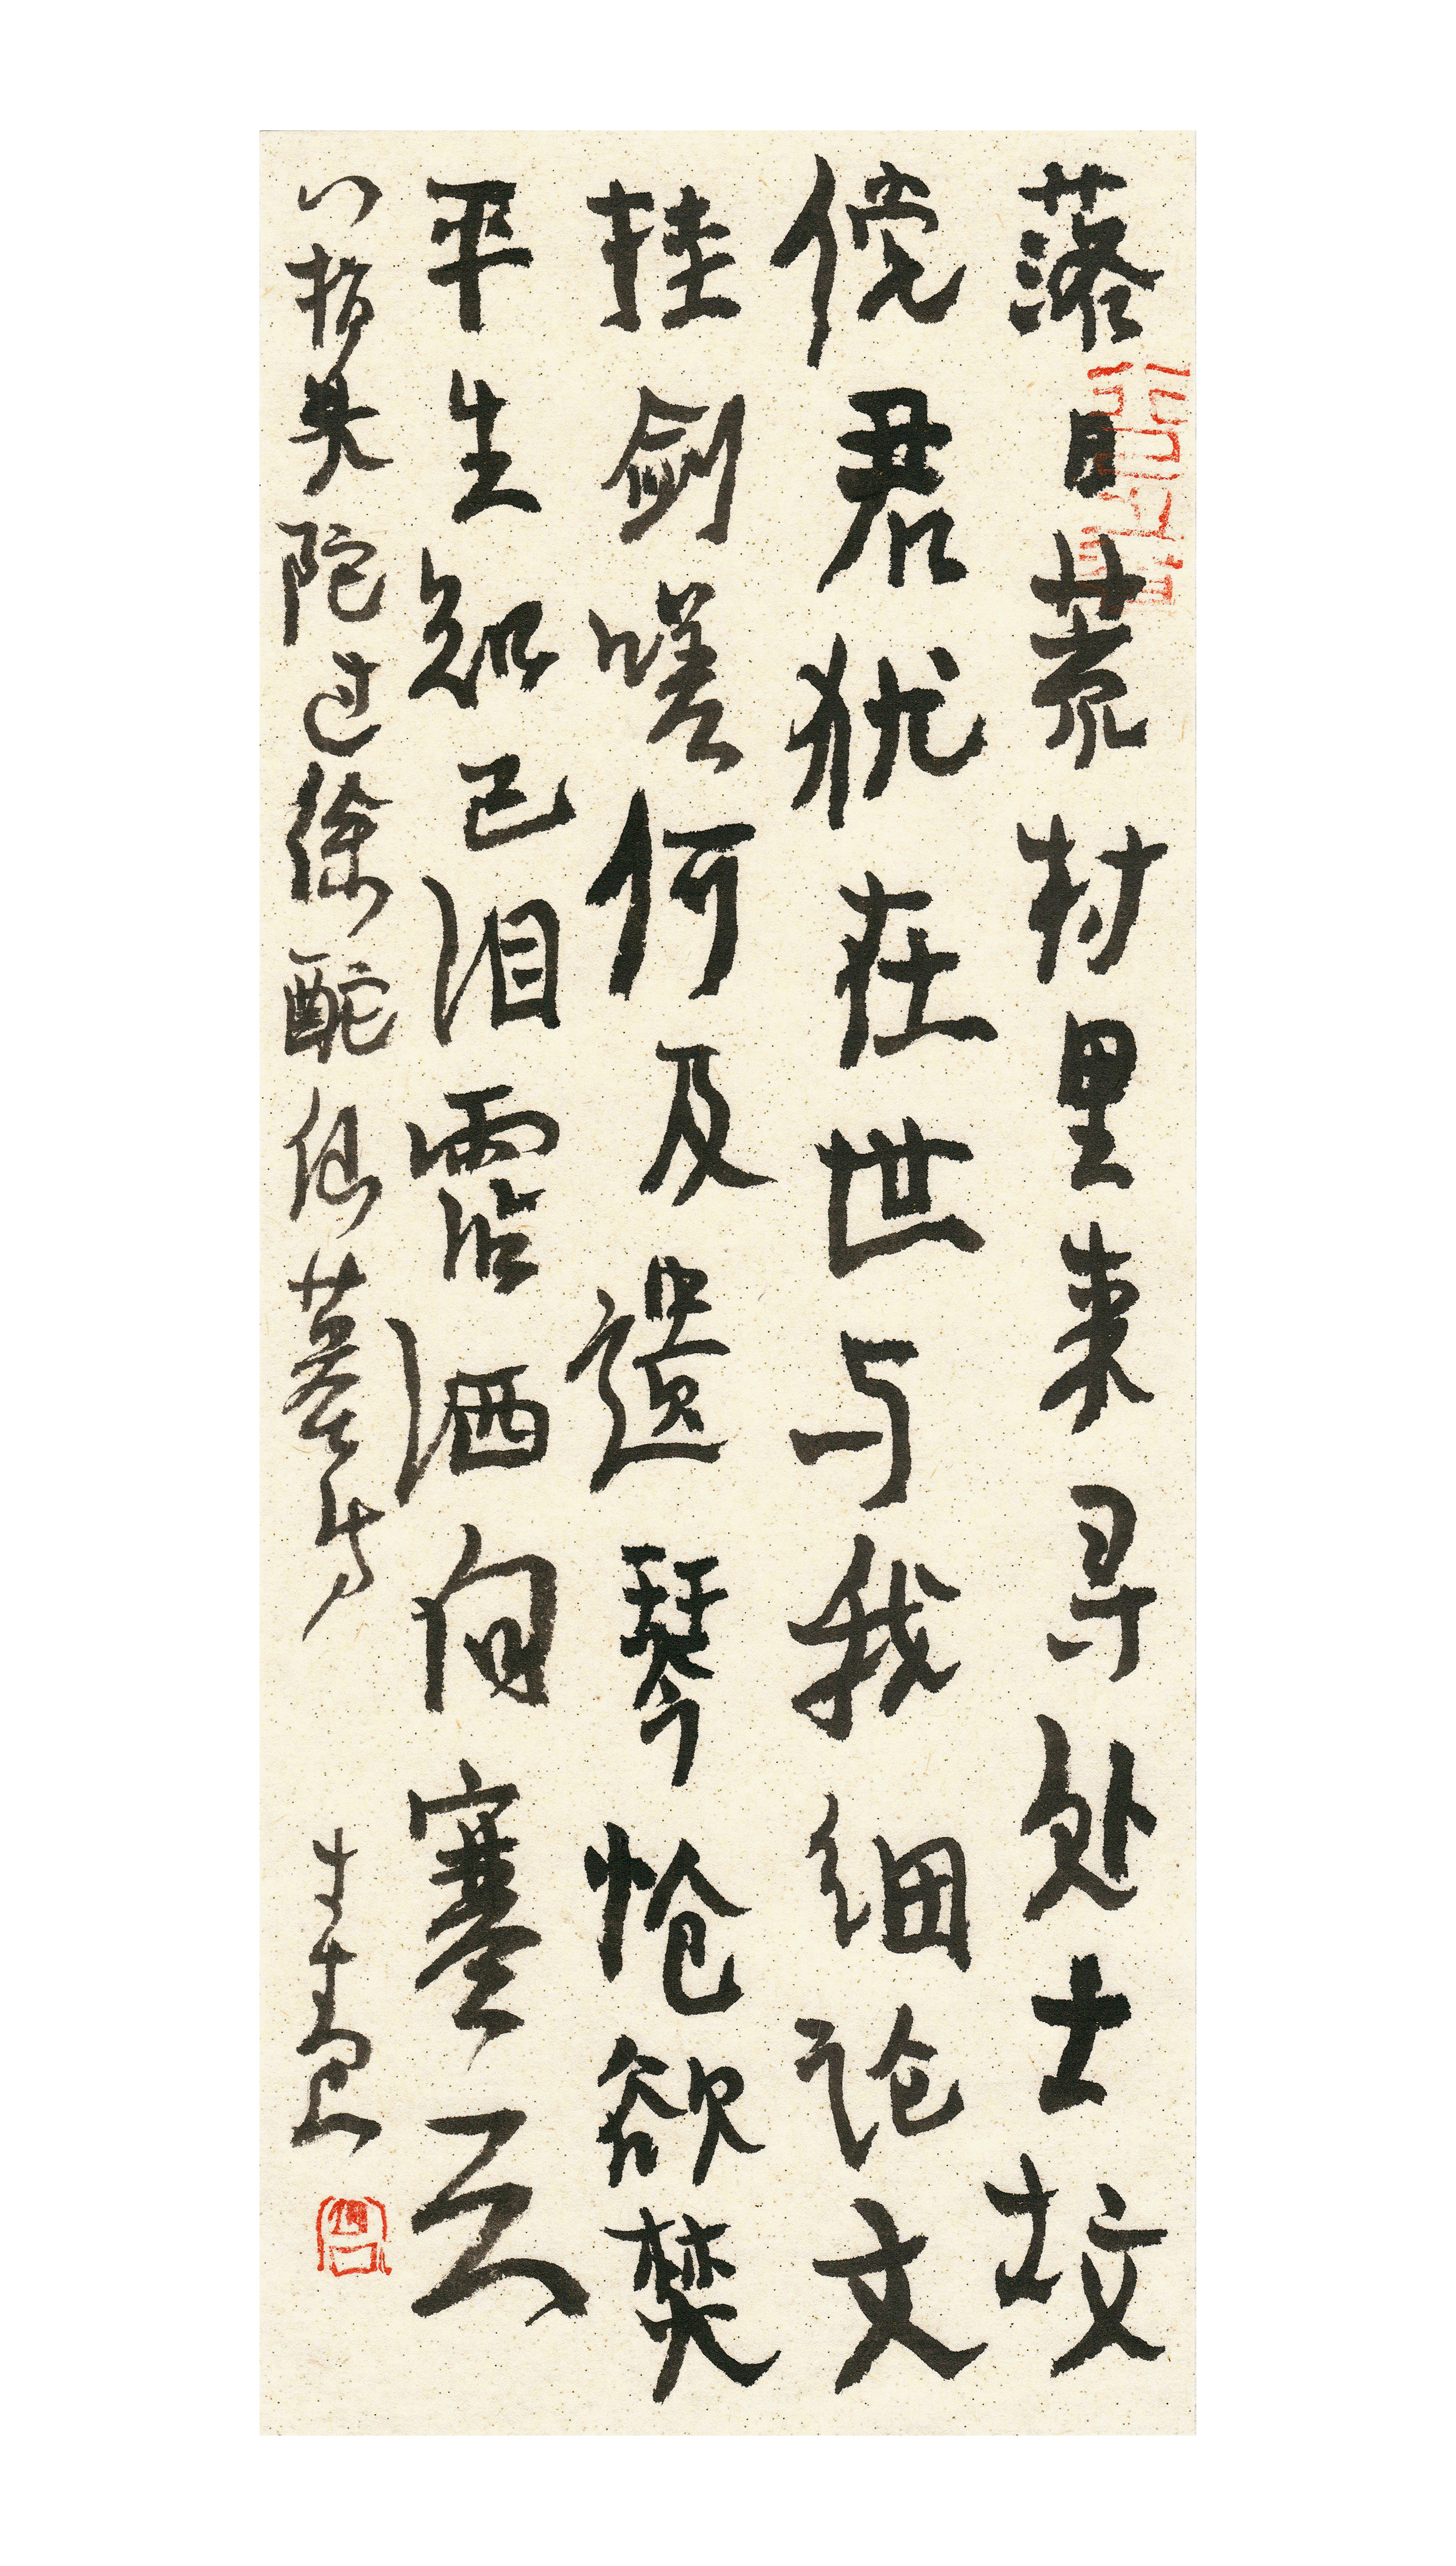 落日荒村里来寻处士坟
傥君犹在世与我细论文
挂剑嗟何及遗琴怆欲焚
平生知己泪沾洒向寒云
八指头陀过徐酡仙墓诗